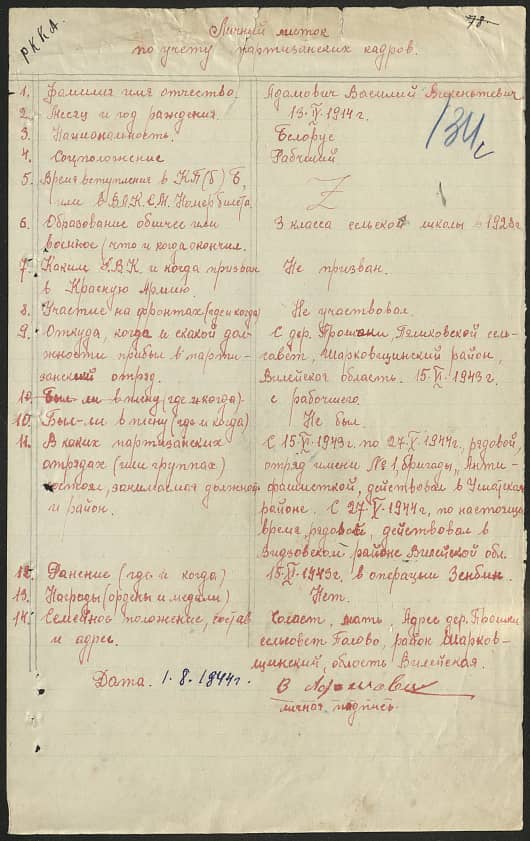 РККА.
78
Личный листок
по учету партизанских кадров.
134
1. Фамилия имя отчество. Адамович Василий Викентьевич
2. Месяц и год раждения. 13.IV.1914 г.
3. Национальность. Белорус
4. Соцположение Рабчий
5. Время вступления в КП(б)Б,
или в ВЛКСМ. Номер билета Z
6. Образование общее или 3 класса сельской школы в 1928г.
военное (что и когда окончил.
7. Каким Р.В.К. и когда призван Не призван.
в Красную Армию.
8. Участие на фронтах (где и когда) Не участвовал.
9. Откуда, когда и скакой дол- С дер. Прошки сель-
жности прибыл в парти- совет, Шарковщинский район,
занский отряд. Вилейская область. 15.VI.1943 г.
10. Был-ли в плену (где и когда). с рабочего.
10. Был-ли в плену (где и когда) Не был.
11. В каких партизанских С 15.VI.1943 г. по 27.V.1944 г., рядовой,
отрядах (или группах) отряд имени №1, бригады „Анти-
состоял, занимаемая должност фашисткой, действовал в Ушатском
и район. районе. С 27.V.1944 г., по настоящие
время рядовой, действовал в
Видзовском районе Вилейской обл.
12. Ранение (где и когда) 15.XI.1943 г. в операции Зенбин.
13. Награды (ордены и медали) Нет.
14. Семейное положение, состав Холаст, мать, Адрес дер. Прошки
и адрес. сельсовет район Шарков-
щинский, область Вилейская.
Дата. 1.8.1944 г.
личная подпись.